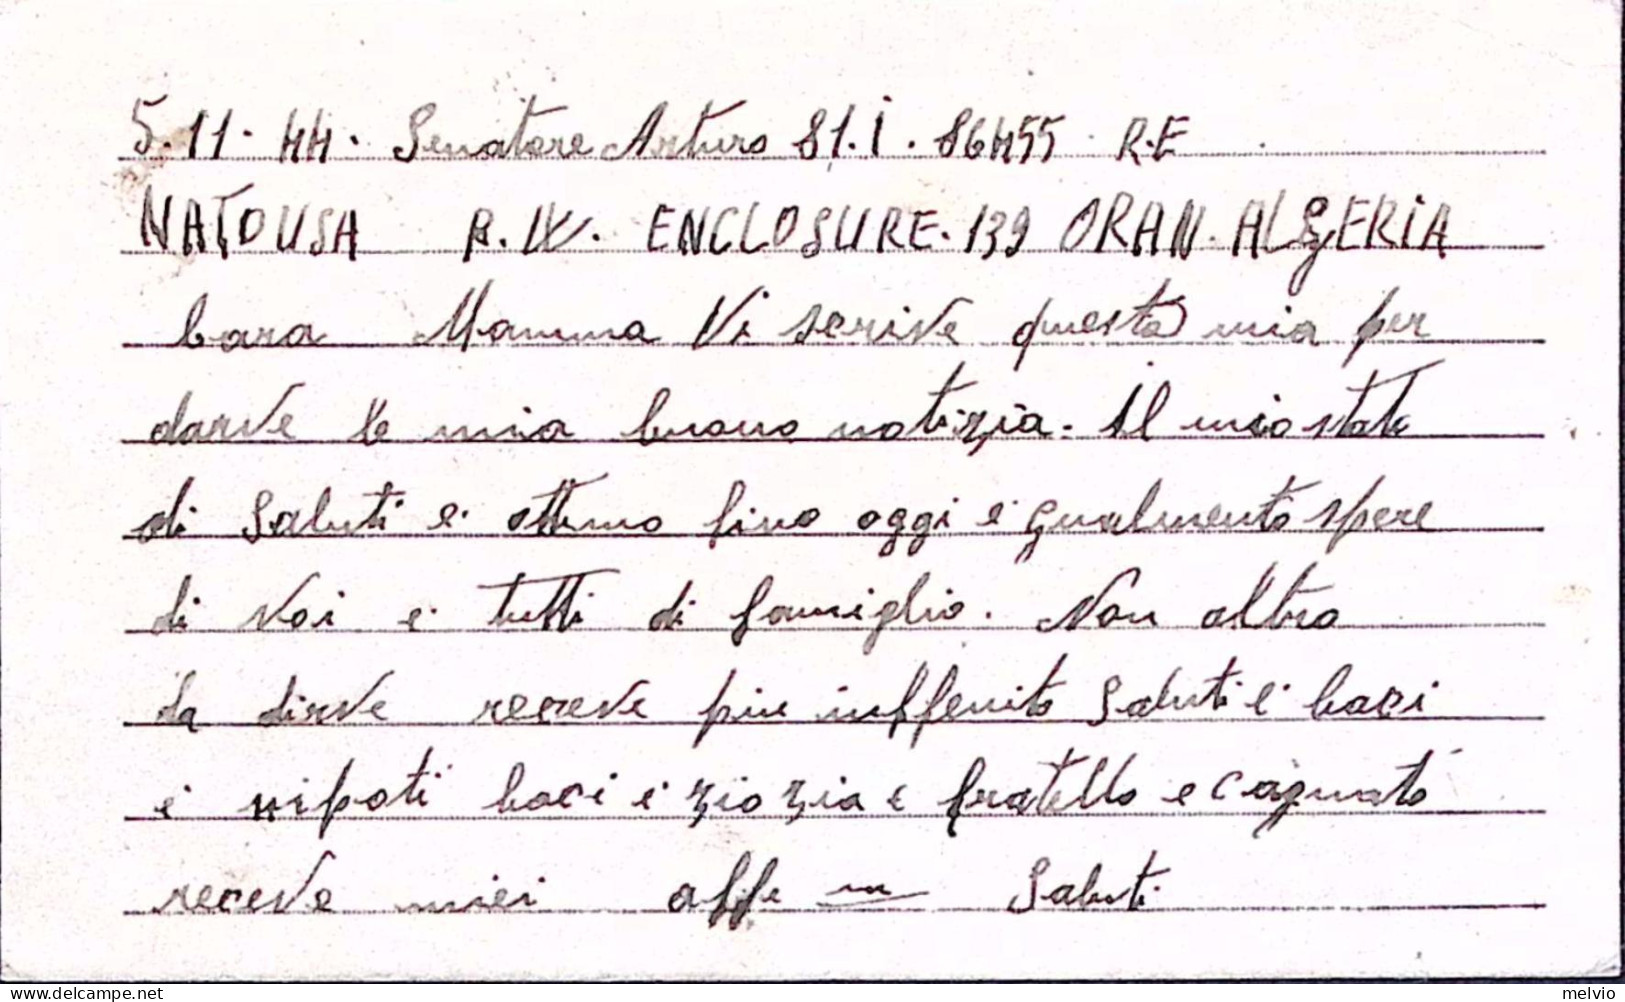 5.11.44. Senatore Arturo 81.I. 86455 R.E
NATOUSA P.W. ENCLOSURE. 139 ORAN. ALGERIA
Cara Mamma Vi scrive questa mia per
darve le mia buono notizia. Il mio stato
di Saluti e ottimo fino oggi e gualmento spere
di voi e tutti di famiglio. Non altro
da dirve receve piu inffenito Saluti e baci
e nipoti baci e zio zia e fratello e cognato
receve miei affe Saluti
delcampe.net
melvio